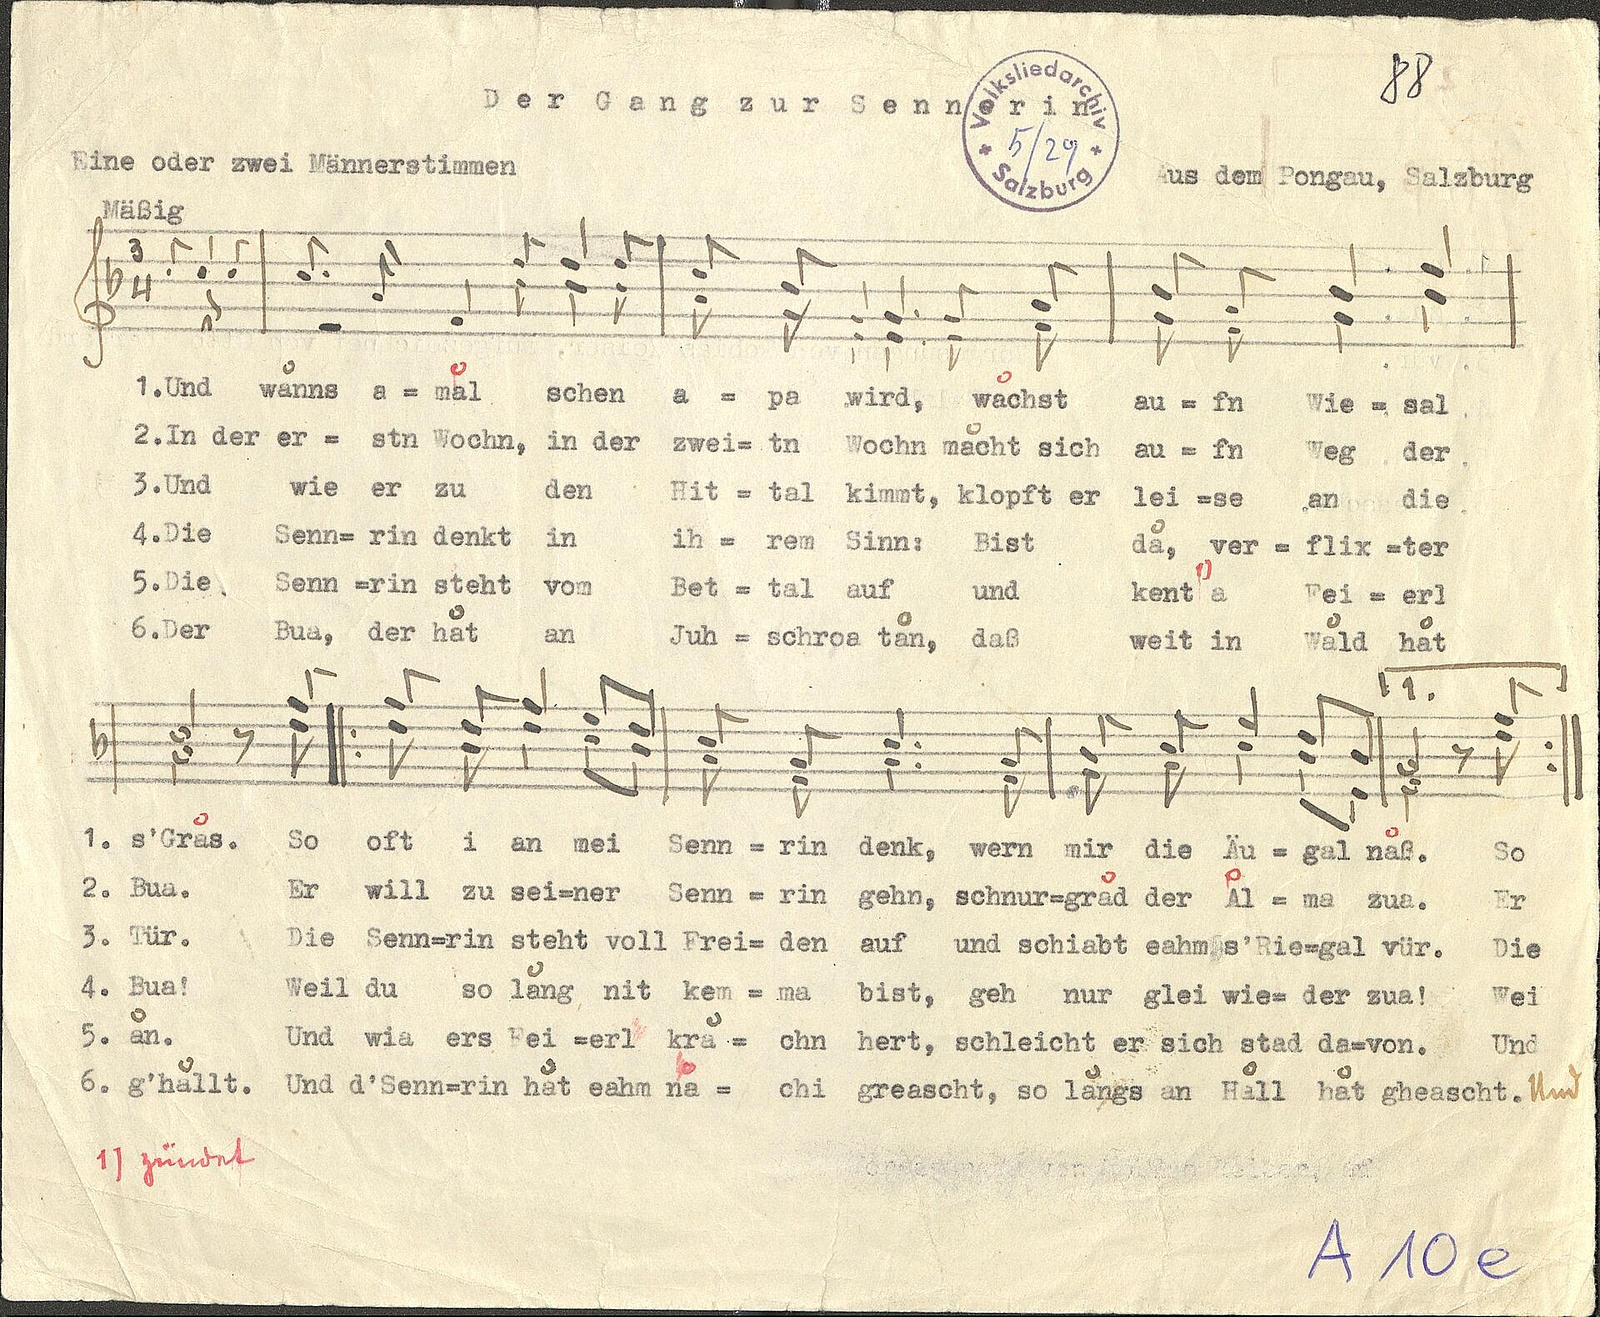 88
Der Gang zur Sennerin
Volksliedarchiv
5/29
Salzburg
Eine oder zwei Männerstimmen
Aus dem Pongau, Salzburg
Mäßig
3
4
1.Und wånns a = mål schen a = pa wird, wåchst au = fn Wie = sal
2.In der er = stn Wochn, in der zwei= tn Wochn måcht sich au = fn Weg der
3.Und wie er zu den Hit = tal kimmt, klopft er lei =se an die
4.Die Senn= rin denkt in ih = rem Sinn: Bist då, ver = flix =ter
5.Die Senn =rin steht vom Bet = tal auf und kent 1) a Fei = erl
6.Der Bua, der håt an Juh = schroa tån, daß weit in Wåld håt
1.
1. s'Grås. So oft i an mei Senn = rin denk, wern mir die Äu = gal nåß. So
2. Bua. Er will zu sei=ner Senn = rin gehn, schnur=gråd der Ål = ma zua. Er
3. Tür. Die Senn=rin steht voll Frei= den auf und schiabt eahm s'Rie=gal vür. Die
4. Bua! Weil du so lång nit kem = ma bist, geh nur glei wie= der zua! Wei
5. ån. Und wia ers Fei =erl krå = chn hert, schleicht er sich stad da=von. Und
6. g'hållt. Und d'Senn=rin håt eahm nå = chi greascht, so långs an Håll håt gheascht. Und
1) zündet
A 10 e